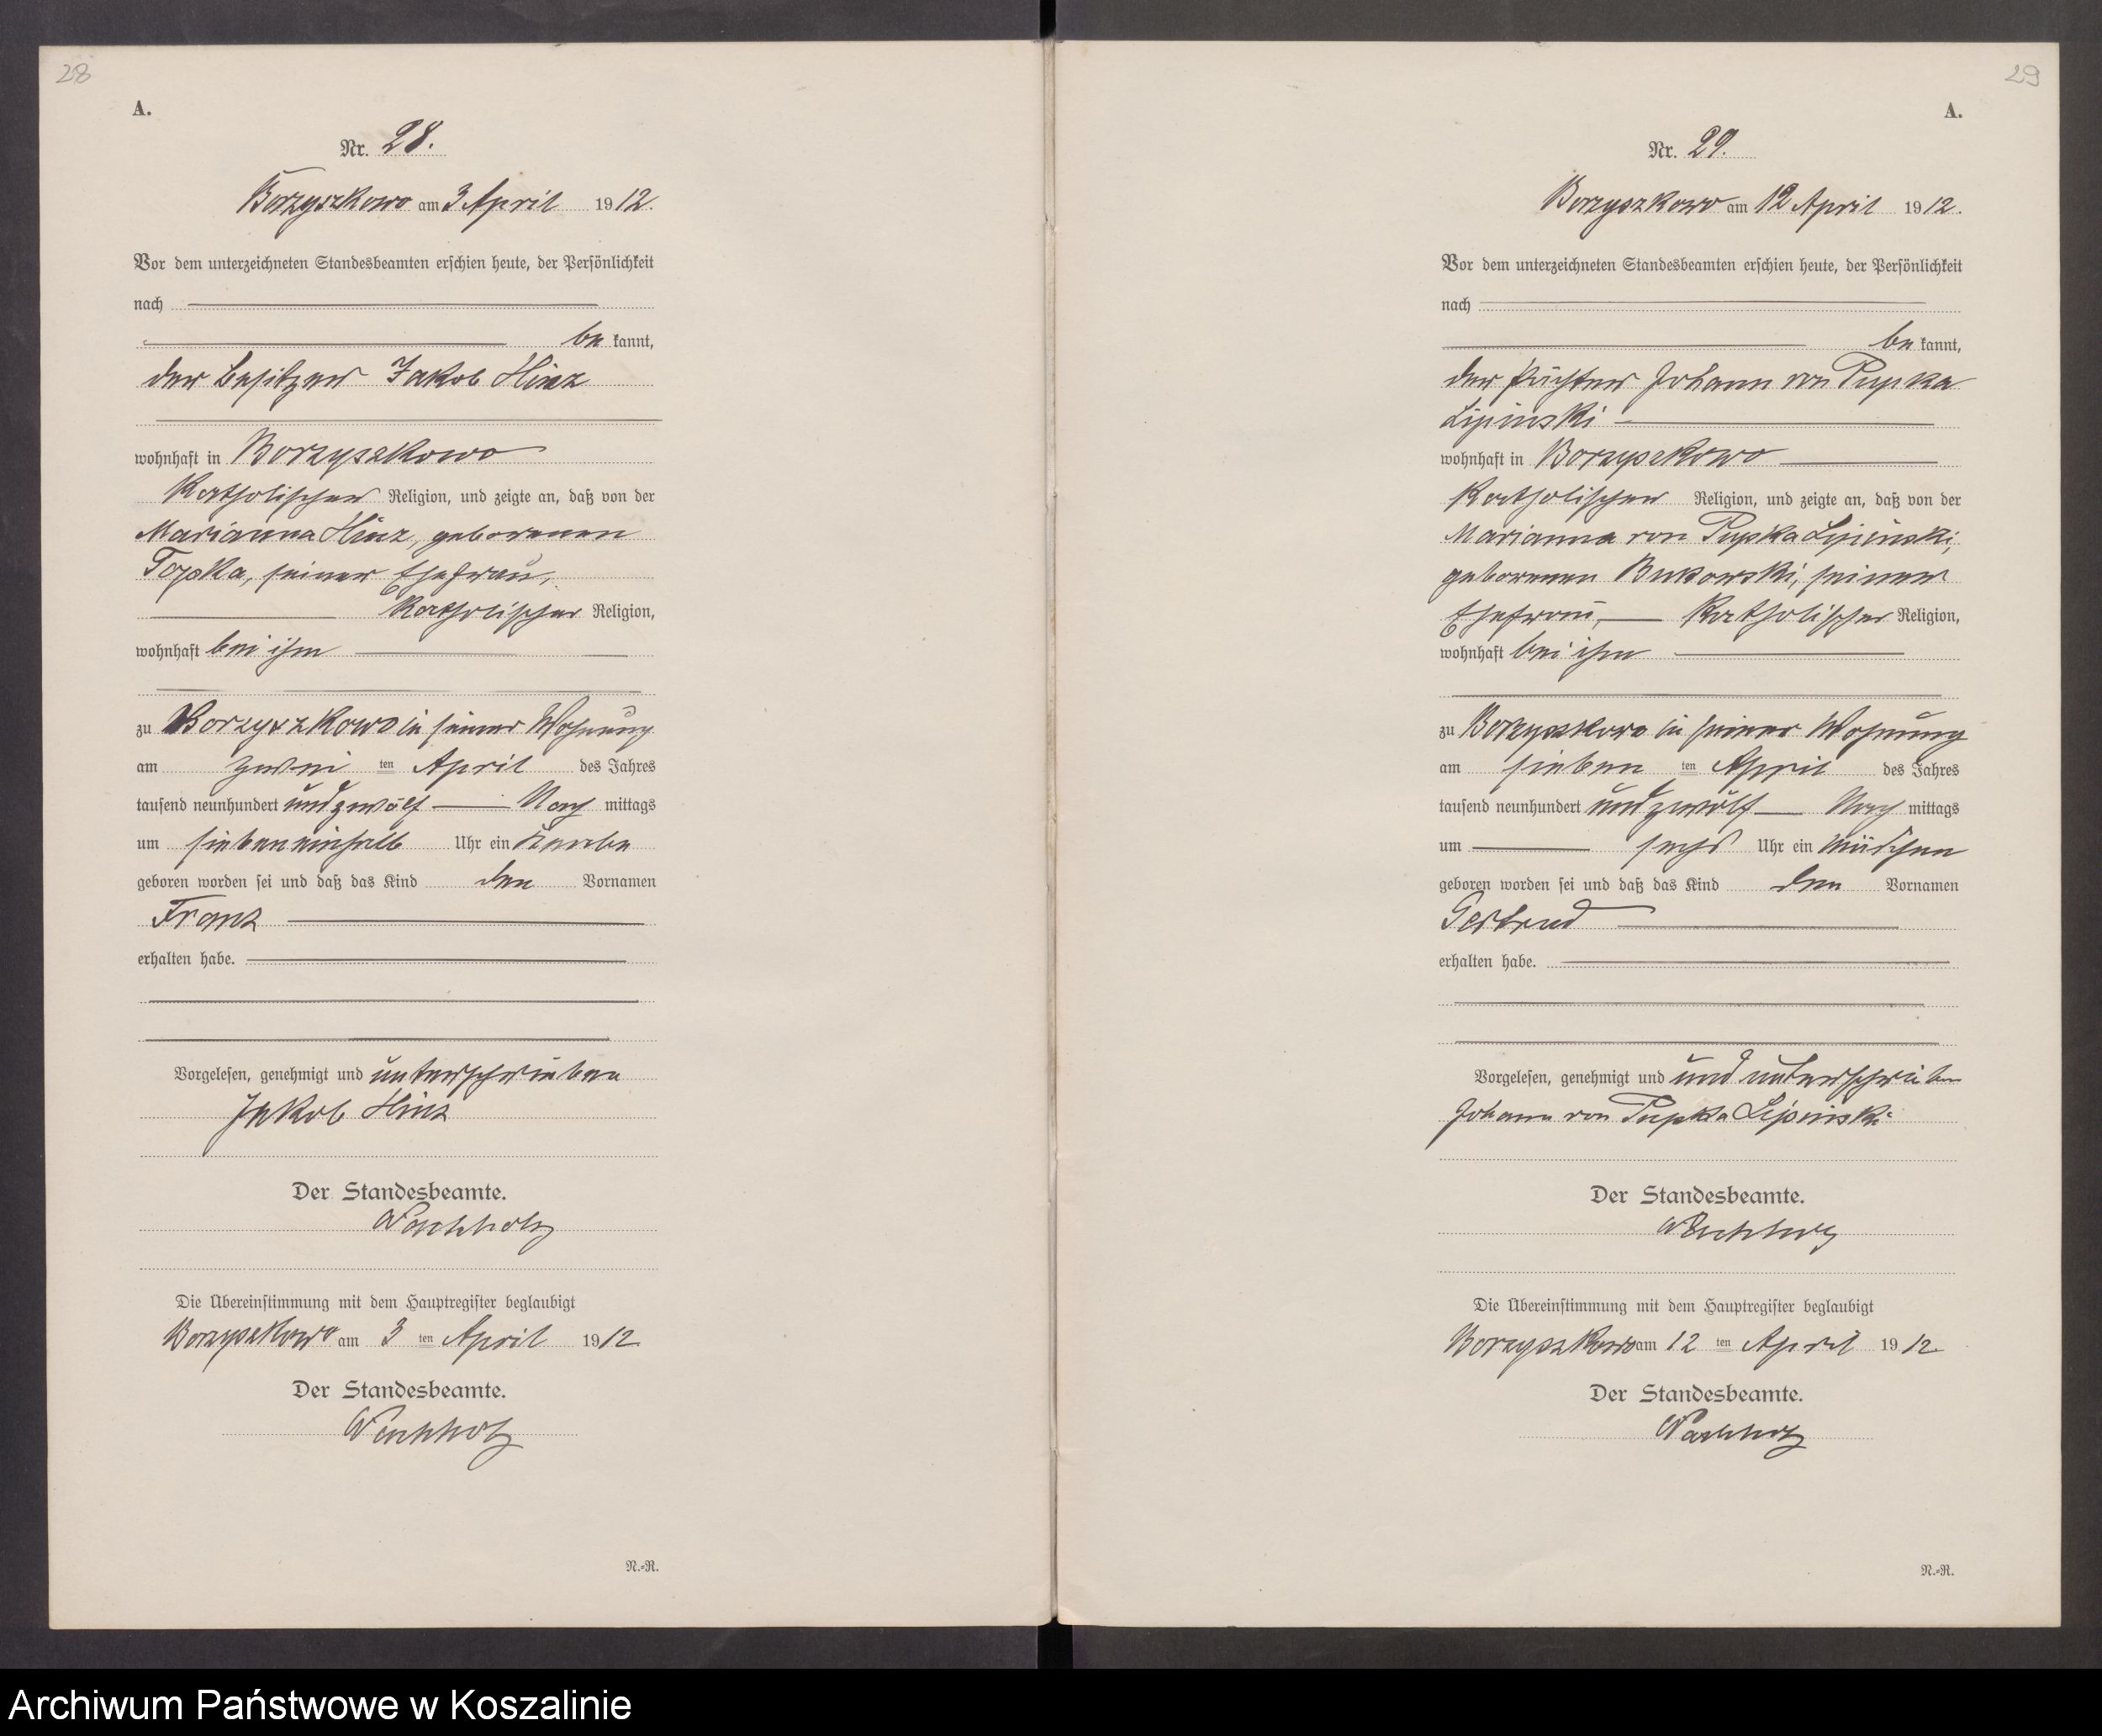 28
A.
Nr. 28.
Borzyszkowo am 3 April 1912.
Vor dem unterzeichneten Standesbeamten erschien heute, der Persönlichkeit
nach
be kannt,
der Besitzer Jakob Hinz
wohnhaft in Borzyszkowo
katholischer Religion, und zeigte an, daß von der
Marianna Hinz, geborenen
Topka, seiner Ehefrau,
katholischer Religion,
wohnhaft bei ihm
zu Borzyszkowo in seiner Wohnung
am zwei ten April des Jahres
tausend neunhundert und zwölf Nach mittags
um sieben einhalb Uhr ein Knabe
geboren worden sei und daß das Kind den Vornamen
Franz
erhalten habe.
Vorgelesen, genehmigt und unterschrieben
Jakob Hinz
Der Standesbeamte.
Wachholz
Die Übereinstimmung mit dem Hauptregister beglaubigt
Borzyszkowo am 3 ten April 1912
Der Standesbeamte.
Wachholz
N.-R.
29
A.
Nr. 29.
Borzyszkowo am 12 April 1912.
Vor dem unterzeichneten Standesbeamten erschien heute, der Persönlichkeit
nach
be kannt,
der Pächter Johann von Pupka
Lipinski
wohnhaft in Borzyszkowo
katholischer Religion, und zeigte an, daß von der
Marianna von Pupka Lipinski,
geborenen Bukowski, seiner
Ehefrau, katholischer Religion,
wohnhaft bei ihm
zu Borzyszkowo in seiner Wohnung
am sieben ten April des Jahres
tausend neunhundert und zwölf Nach mittags
um sechs Uhr ein Mädchen
geboren worden sei und daß das Kind den Vornamen
Gertrud
erhalten habe.
Vorgelesen, genehmigt und und unterschrieben
Johann von Pupka Lipinski
Der Standesbeamte.
Wachholz
Die Übereinstimmung mit dem Hauptregister beglaubigt
Borzyszkowo am 12 ten April 1912
Der Standesbeamte.
Wachholz
N.-R.
Archiwum Państwowe w Koszalinie